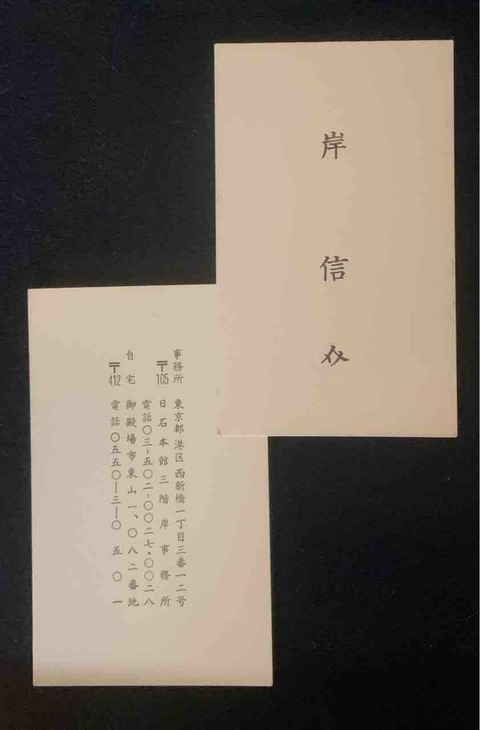 岸信介
事務所 東京都港区西新橋一丁目三番一二号
〒105 日石本館三階岸事務所
電話〇三-五〇二-〇〇二七・〇〇二八
自宅 御殿場市東山一、〇八二番地
〒412 電話〇五五〇―三―〇五〇一